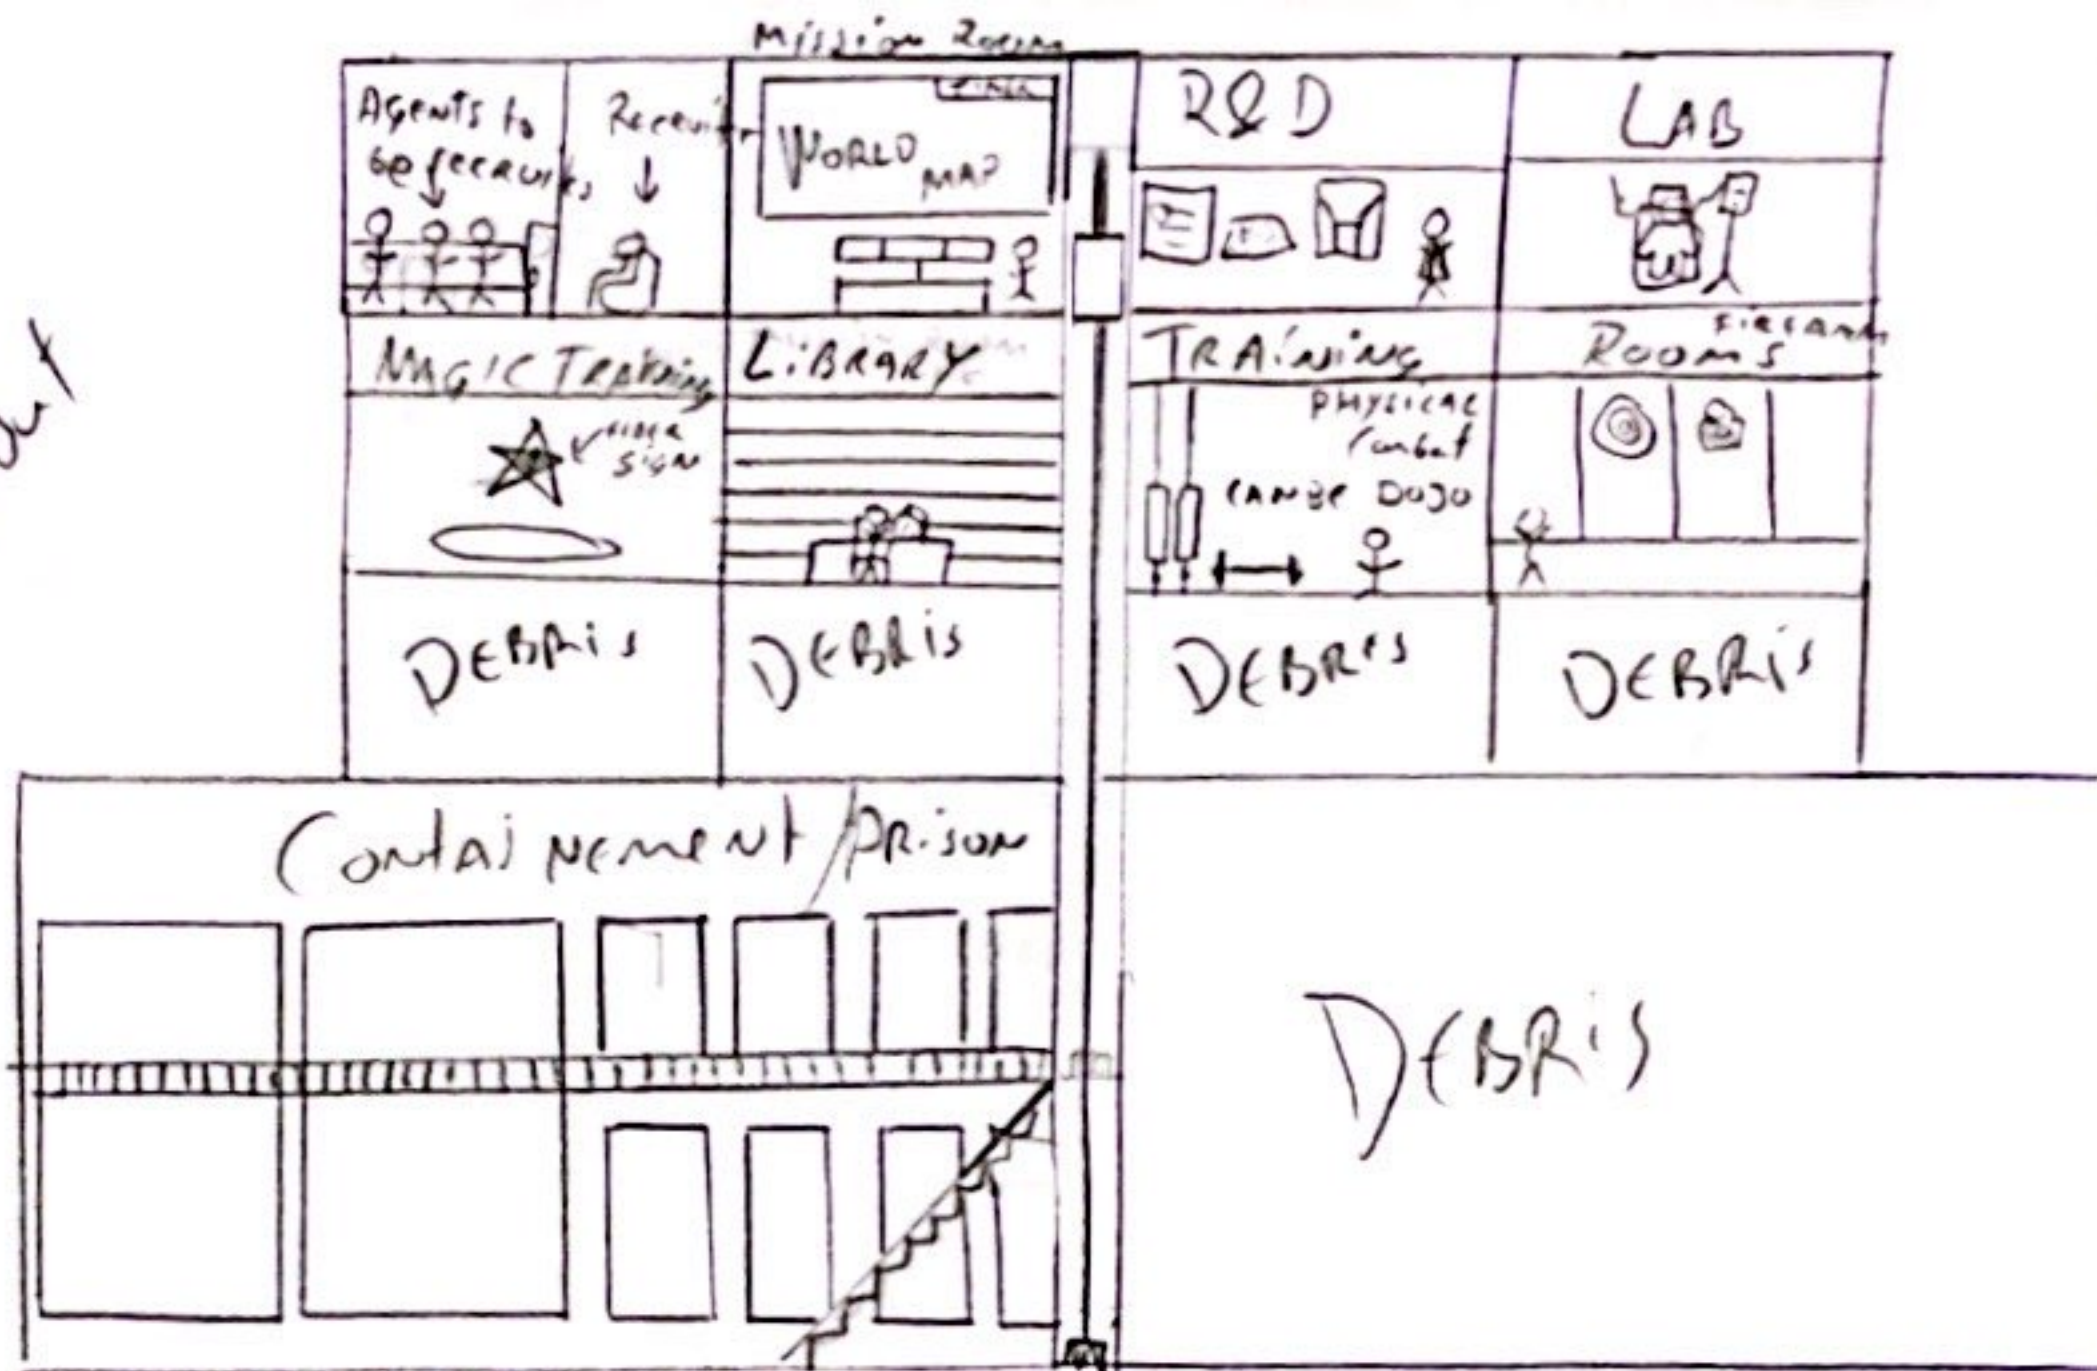 Mission Room
Agents to
be recruits
WORLD
MAP
R&D
LAB
MAGIC TRAINING
LiBRARY
TRAiNiNG
ROOMS
SiGN
PHYSICAL
Combat
CANBE DOJO
DEBRiS
DEBRiS
DEBRiS
DEBRiS
ContaiNement/PRiSON
DEBRiS